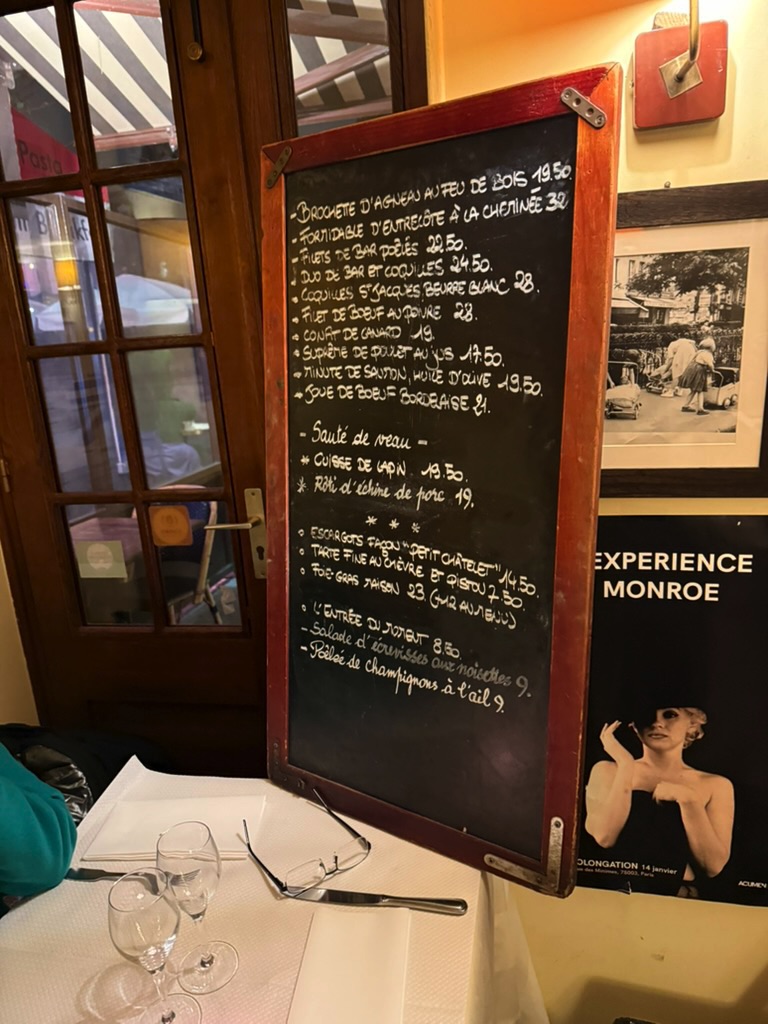 - BROCHETTE D'AGNEAU AU FEU DE BOIS 19.50
- FORMIDABLE D'ENTRECÔTE À LA CHEMINÉE 32
- FILETS DE BAR POÊLÉS 22.50.
DUO DE BAR ET COQUILLES 24.50.
COQUILLES ST JACQUES, BEURRE BLANC 28.
FILET DE BOEUF AU POIVRE 28.
CONFIT DE CANARD 19.
SUPRÊME DE POULET AU JUS 17.50.
MINUTE DE SAUMON, HUILE D'OLIVE 19.50.
JOUE DE BOEUF BORDELAISE 21.
- Sauté de veau -
* CUISSE DE LAPIN 19.50.
* Rôti d'échine de porc 19.
* * *
ESCARGOTS FAÇON "PETIT CHÂTELET" 14.50.
TARTE FINE AU CHÈVRE ET PISTOU 7.50.
FOIE GRAS MAISON 23 (+12 AU MENU)
L'ENTRÉE DU MOMENT 8.50.
- Salade d'écrevisses aux noisettes 9.
- Poêlée de champignons à l'ail 9.
Pasta
EXPERIENCE
MONROE
OLONGATION 14 janvier
rue des Minimes, 75003, Paris
ACUMEN